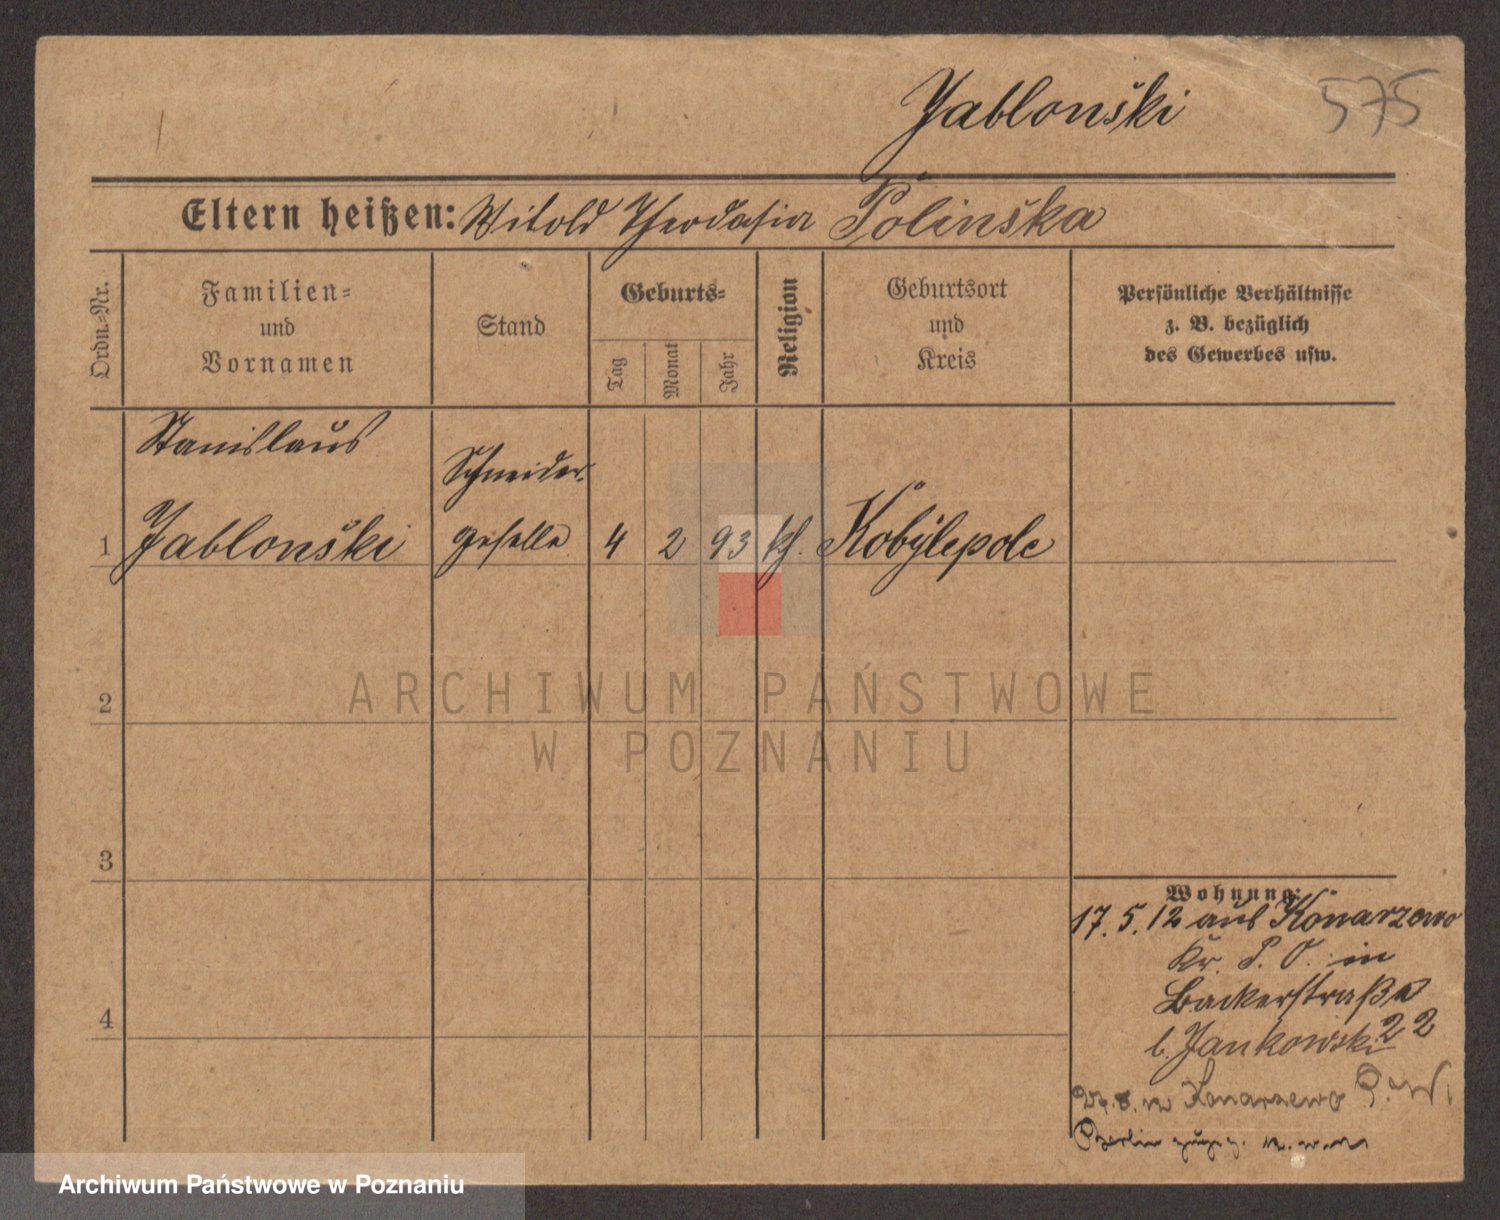 Jablonški
575
Eltern heißen: Witold Theodosia Polinška
Ordn.-Nr.
Familien- und Vornamen
Stand
Geburts-
Tag
Monat
Jahr
Religion
Geburtsort und Kreis
Persönliche Verhältnisse z. B. bezüglich des Gewerbes usw.
Stanislaus
Schneider-
1 Jablonški geselle 4 2 93 kth. Kobylepole
2
3
4
Wohnung:
17. 5. 12 aus Konarzewo
Kr. P. O. in
Backerstraße
b. Jankowski 22
n Konarzewo P. W.
Berlin
ARCHIWUM PAŃSTWOWE
W POZNANIU
Archiwum Państwowe w Poznaniu